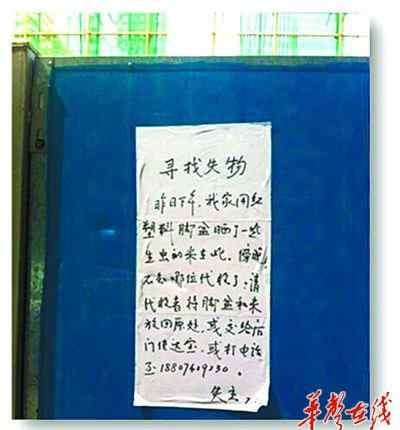 寻找失物
昨日下午，我家用红
塑料脚盆晒了一些
生虫的米在此，傍晚
不知哪位代收了，请
代收者将脚盆和米
放回原处，或交给后
门传达室，或打电话
至18807409230。
失主
华声在线